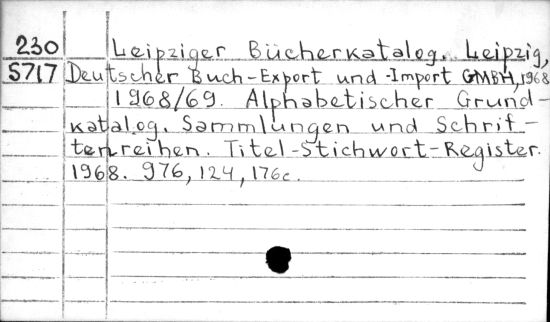 230 Leipziger Bücherkatalog. Leipzig,
5717 Deutscher Buch-Export und -Import GMBH, 1968
1968/69. Alphabetischer Grund-
katalog. Sammlungen und Schrif-
tenreihen. Titel-Stichwort-Register.
1968. 976, 124, 176c.